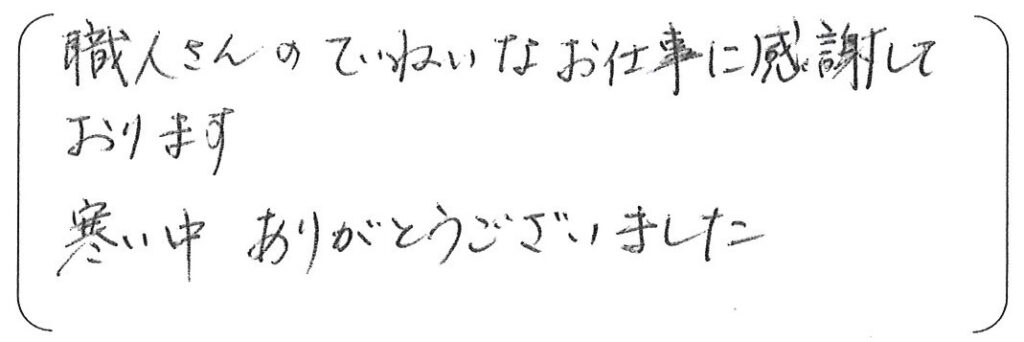 職人さんのていねいなお仕事に感謝して
おります
寒い中 ありがとうございました